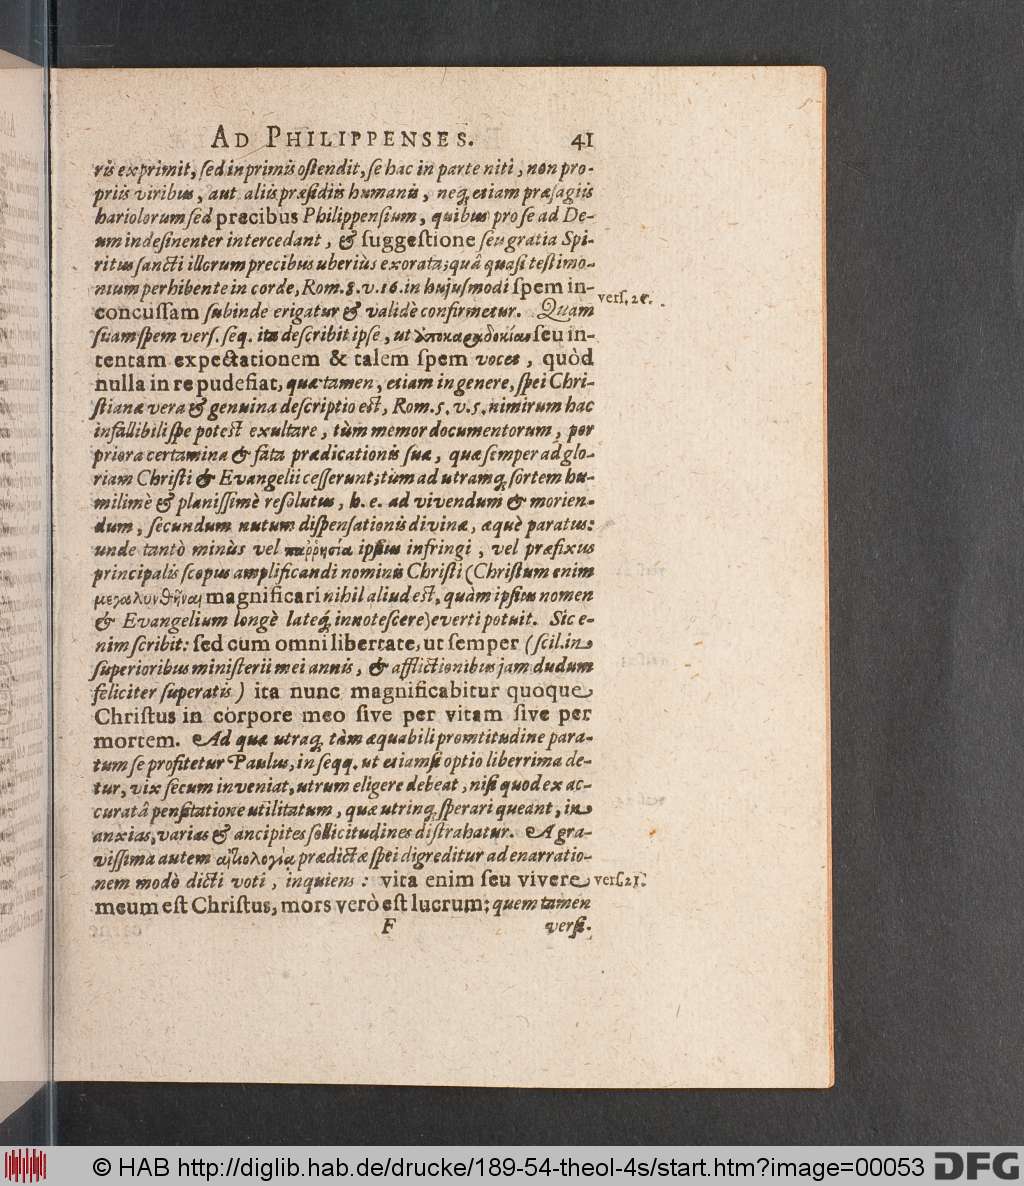 AD PHILIPPENSES. 41
ris exprimit, sed inprimis ostendit, se hac in parte niti, non pro-
priis viribus, aut aliis præsidiis humanis, neq; etiam præsagiis
hariolorum sed precibus Philippensium, quibus pro se ad De-
um indesinenter intercedant, & suggestione seu gratia Spi-
ritus sancti illorum precibus uberiùs exorata; quâ quasi testimo-
nium perhibente in corde, Rom. 8. v. 16. in hujusmodi spem in-
vers. 20.
concussam subinde erigatur & validè confirmetur. Quam
suam spem vers. seq. ita describit ipse, ut ἀποκαραδοκίαν seu in-
tentam expectationem & talem spem vocet, quòd
nulla in re pudefiat, quæ tamen, etiam in genere, spei Chri-
stianæ vera & genuina descriptio est, Rom. 5. v. 5. nimirum hac
infallibili spe potest exultare, tùm memor documentorum, per
priora certamina & fata prædicationis suæ, quæ semper ad glo-
riam Christi & Evangelii cesserunt; tùm ad utramq; sortem hu-
milimè & planissimè resolutus, h. e. ad vivendum & morien-
dum, secundum nutum dispensationis divinæ, æquè paratus:
unde tantò minùs vel παῤῥησία ipsius infringi, vel præfixus
principalis scopus amplificandi nominis Christi (Christum enim
μεγαλυνθῆναι magnificari nihil aliud est, quàm ipsius nomen
& Evangelium longè lateq; innotescere) everti potuit. Sic e-
nim scribit: sed cum omni libertate, ut semper (scil. in
superioribus ministerii mei annis, & afflictionibus jam dudum
feliciter superatis) ita nunc magnificabitur quoque
Christus in corpore meo sive per vitam sive per
mortem. Ad quæ utraq; tàm æquabili promtitudine para-
tum se profitetur Paulus, in seqq. ut etiamsi optio liberrima de-
tur, vix secum inveniat, utrum eligere debeat, nisi quod ex ac-
curatâ pensitatione utilitatum, quæ utrinq; sperari queant, in
anxias, varias & ancipites sollicitudines distrahatur. A gra-
vissima autem αἰτιολογία prædictæ spei digreditur ad enarratio-
nem modò dicti voti, inquiens: vita enim seu vivere
vers. 21.
meum est Christus, mors verò est lucrum; quem tamen
F versi-
© HAB http://diglib.hab.de/drucke/189-54-theol-4s/start.htm?image=00053 DFG